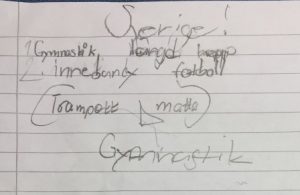 Sverige!
1. Gymnastik, längd hopp
2. innebandy fotboll
(Trampett matta)
Gymnastik